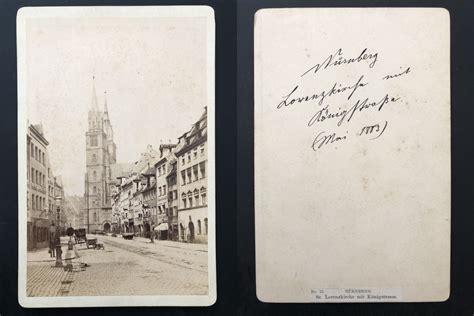 Nürnberg
Lorenzkirche mit
Königstraße
(Mai 1883)
NÜRNBERG.
St. Lorenzkirche mit Königstrasse.